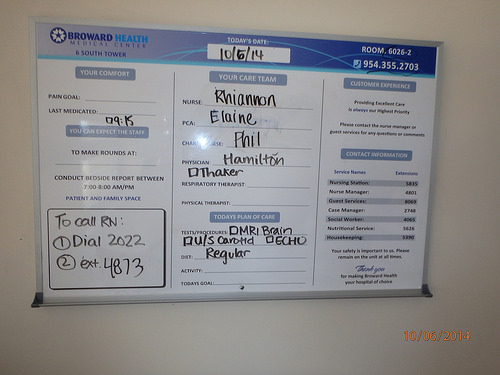 BROWARD HEALTH
MEDICAL CENTER
6 SOUTH TOWER
TODAY'S DATE:
10/6/14
ROOM. 6026-2
954.355.2703
YOUR COMFORT
PAIN GOAL:
LAST MEDICATED: 09:15
YOU CAN EXPECT THE STAFF
TO MAKE ROUNDS AT:
CONDUCT BEDSIDE REPORT BETWEEN
7:00-8:00 AM/PM
PATIENT AND FAMILY SPACE
To call RN:
① Dial 2022
② ext. 4873
YOUR CARE TEAM
NURSE: Rhiannon
PCA: Elaine
CHARGE NURSE: Phil
PHYSICIAN: Hamilton
Thaker
RESPIRATORY THERAPIST:
PHYSICAL THERAPIST:
TODAYS PLAN OF CARE
TESTS/PROCEDURES: □MRI Brain
□U/S Carotid □ECHO
DIET: Regular
ACTIVITY:
TODAYS GOAL:
CUSTOMER EXPERIENCE
Providing Excellent Care
is always our Highest Priority
Please contact the nurse manager or
guest services for any questions or comments
CONTACT INFORMATION
Service Names Extensions
Nursing Station: 5835
Nurse Manager: 4801
Guest Services: 8069
Case Manager: 2748
Social Worker: 4065
Nutritional Service: 5626
Housekeeping: 5390
Your safety is important to us. Please
remain on the unit at all times.
Thank you
for making Broward Health
your hospital of choice
10/06/2014